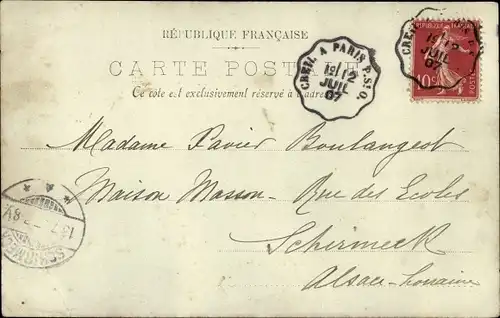 RÉPUBLIQUE FRANÇAISE
CARTE POSTALE
Ce côté est exclusivement réservé à l'adresse
CREIL A PARIS P.St O.
12/12
JUIL
07
CREIL
JUIL
07
10c
Madame Xavier Boulangeot
Maison Masson - Rue des Ecoles
Schirmeck
Alsace-Lorraine
SCHIRMECK
13.7